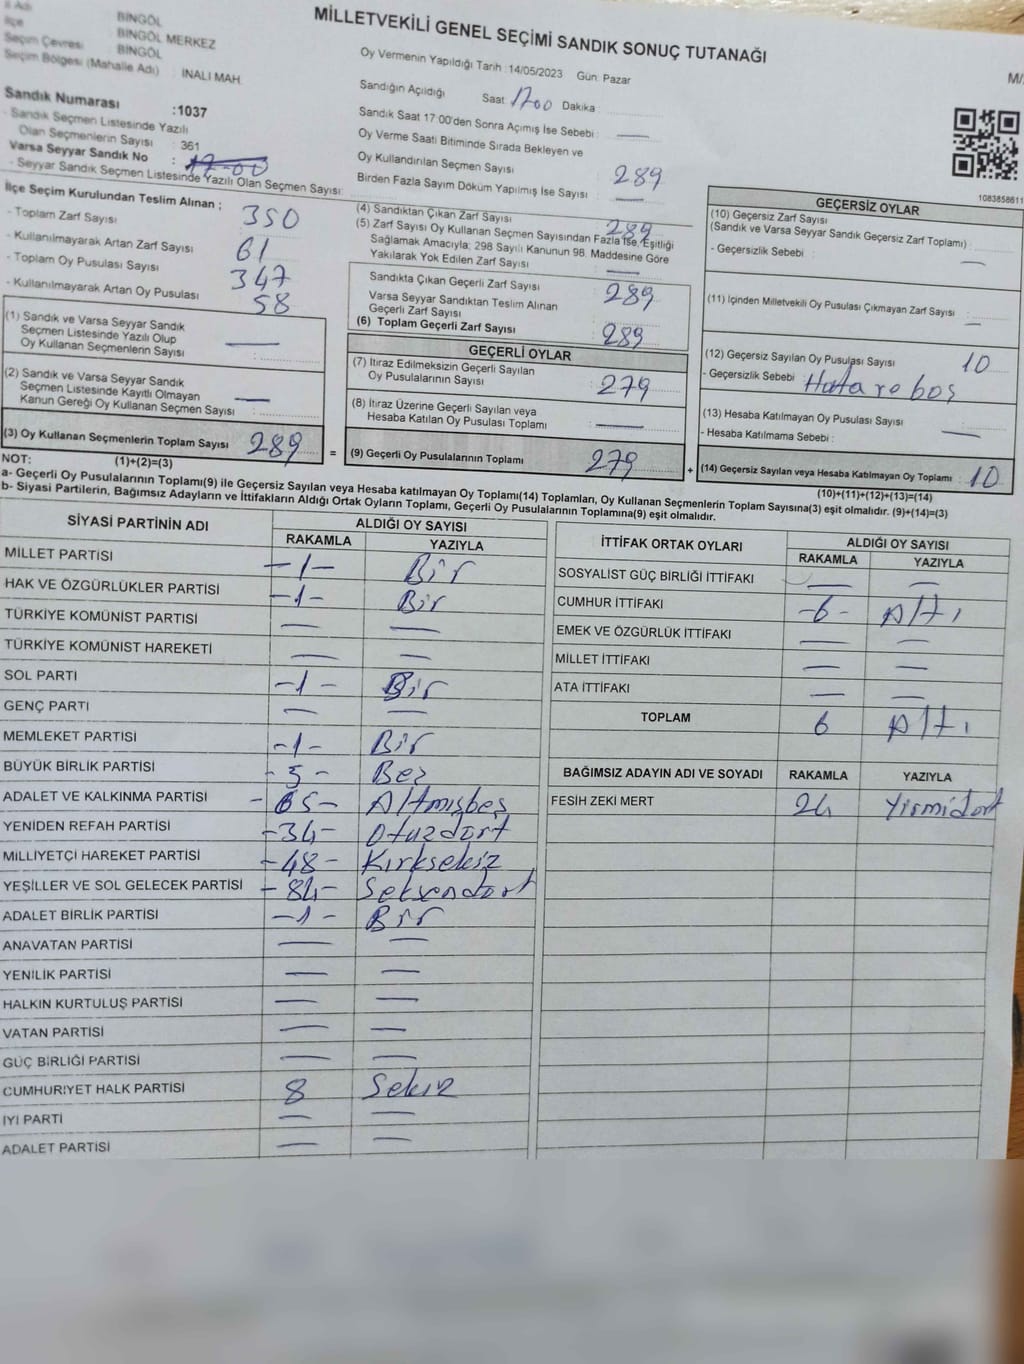 MİLLETVEKİLİ GENEL SEÇİMİ SANDIK SONUÇ TUTANAĞI
İl Adı : BİNGÖL
İlçe : BİNGÖL MERKEZ
Seçim Çevresi : BİNGÖL
Seçim Bölgesi (Mahalle Adı) : İNALI MAH.
Sandık Numarası :1037
- Sandık Seçmen Listesinde Yazılı
Olan Seçmenlerin Sayısı : 361
Varsa Seyyar Sandık No : 17-00
- Seyyar Sandık Seçmen Listesinde Yazılı Olan Seçmen Sayısı:
İlçe Seçim Kurulundan Teslim Alınan :
- Toplam Zarf Sayısı 350
- Kullanılmayarak Artan Zarf Sayısı 61
- Toplam Oy Pusulası Sayısı 347
- Kullanılmayarak Artan Oy Pusulası 58
(1) Sandık ve Varsa Seyyar Sandık
Seçmen Listesinde Yazılı Olup
Oy Kullanan Seçmenlerin Sayısı : —
(2) Sandık ve Varsa Seyyar Sandık
Seçmen Listesinde Kayıtlı Olmayan
Kanun Gereği Oy Kullanan Seçmen Sayısı : —
(3) Oy Kullanan Seçmenlerin Toplam Sayısı 289 =
Oy Vermenin Yapıldığı Tarih :14/05/2023 Gün: Pazar
Sandığın Açıldığı Saat: 17.00 Dakika :
Sandık Saat 17:00'den Sonra Açımış İse Sebebi : —
Oy Verme Saati Bitiminde Sırada Bekleyen ve
Oy Kullandırılan Seçmen Sayısı 289
Birden Fazla Sayım Döküm Yapılmış İse Sayısı —
(4) Sandıktan Çıkan Zarf Sayısı 289
(5) Zarf Sayısı Oy Kullanan Seçmen Sayısından Fazla İse, Eşitliği
Sağlamak Amacıyla; 298 Sayılı Kanunun 98. Maddesine Göre
Yakılarak Yok Edilen Zarf Sayısı —
Sandıkta Çıkan Geçerli Zarf Sayısı 289
Varsa Seyyar Sandıktan Teslim Alınan
Geçerli Zarf Sayısı
(6) Toplam Geçerli Zarf Sayısı 289
GEÇERLİ OYLAR
(7) İtiraz Edilmeksizin Geçerli Sayılan
Oy Pusulalarının Sayısı 279
(8) İtiraz Üzerine Geçerli Sayılan veya
Hesaba Katılan Oy Pusulası Toplamı —
(9) Geçerli Oy Pusulalarının Toplamı 279 +
M/
1083858611
GEÇERSİZ OYLAR
(10) Geçersiz Zarf Sayısı
(Sandık ve Varsa Seyyar Sandık Geçersiz Zarf Toplamı)
- Geçersizlik Sebebi : —
(11) İçinden Milletvekili Oy Pusulası Çıkmayan Zarf Sayısı : —
(12) Geçersiz Sayılan Oy Pusulası Sayısı 10
- Geçersizlik Sebebi : Hata ve boş
(13) Hesaba Katılmayan Oy Pusulası Sayısı —
- Hesaba Katılmama Sebebi :
(14) Geçersiz Sayılan veya Hesaba Katılmayan Oy Toplamı : 10
NOT: (1)+(2)=(3) (10)+(11)+(12)+(13)=(14)
a- Geçerli Oy Pusulalarının Toplamı(9) ile Geçersiz Sayılan veya Hesaba katılmayan Oy Toplamı(14) Toplamları, Oy Kullanan Seçmenlerin Toplam Sayısına(3) eşit olmalıdır. (9)+(14)=(3)
b- Siyasi Partilerin, Bağımsız Adayların ve İttifakların Aldığı Ortak Oyların Toplamı, Geçerli Oy Pusulalarının Toplamına(9) eşit olmalıdır.
SİYASİ PARTİNİN ADI ALDIĞI OY SAYISI
RAKAMLA YAZIYLA
MİLLET PARTİSİ -1- Bir
HAK VE ÖZGÜRLÜKLER PARTİSİ -1- Bir
TÜRKİYE KOMÜNİST PARTİSİ — —
TÜRKİYE KOMÜNİST HAREKETİ — —
SOL PARTİ -1- Bir
GENÇ PARTİ — —
MEMLEKET PARTİSİ -1- Bir
BÜYÜK BİRLİK PARTİSİ -5- Beş
ADALET VE KALKINMA PARTİSİ -65- Altmışbeş
YENİDEN REFAH PARTİSİ -34- Otuzdört
MİLLİYETÇİ HAREKET PARTİSİ -48- Kırksekiz
YEŞİLLER VE SOL GELECEK PARTİSİ -84- Seksendört
ADALET BİRLİK PARTİSİ -1- Bir
ANAVATAN PARTİSİ — —
YENİLİK PARTİSİ — —
HALKIN KURTULUŞ PARTİSİ — —
VATAN PARTİSİ — —
GÜÇ BİRLİĞİ PARTİSİ — —
CUMHURİYET HALK PARTİSİ 8 Sekiz
İYİ PARTİ — —
ADALET PARTİSİ — —
İTTİFAK ORTAK OYLARI ALDIĞI OY SAYISI
RAKAMLA YAZIYLA
SOSYALİST GÜÇ BİRLİĞİ İTTİFAKI — —
CUMHUR İTTİFAKI -6- Altı
EMEK VE ÖZGÜRLÜK İTTİFAKI — —
MİLLET İTTİFAKI — —
ATA İTTİFAKI — —
TOPLAM 6 Altı
BAĞIMSIZ ADAYIN ADI VE SOYADI RAKAMLA YAZIYLA
FESİH ZEKİ MERT 24 Yirmidört